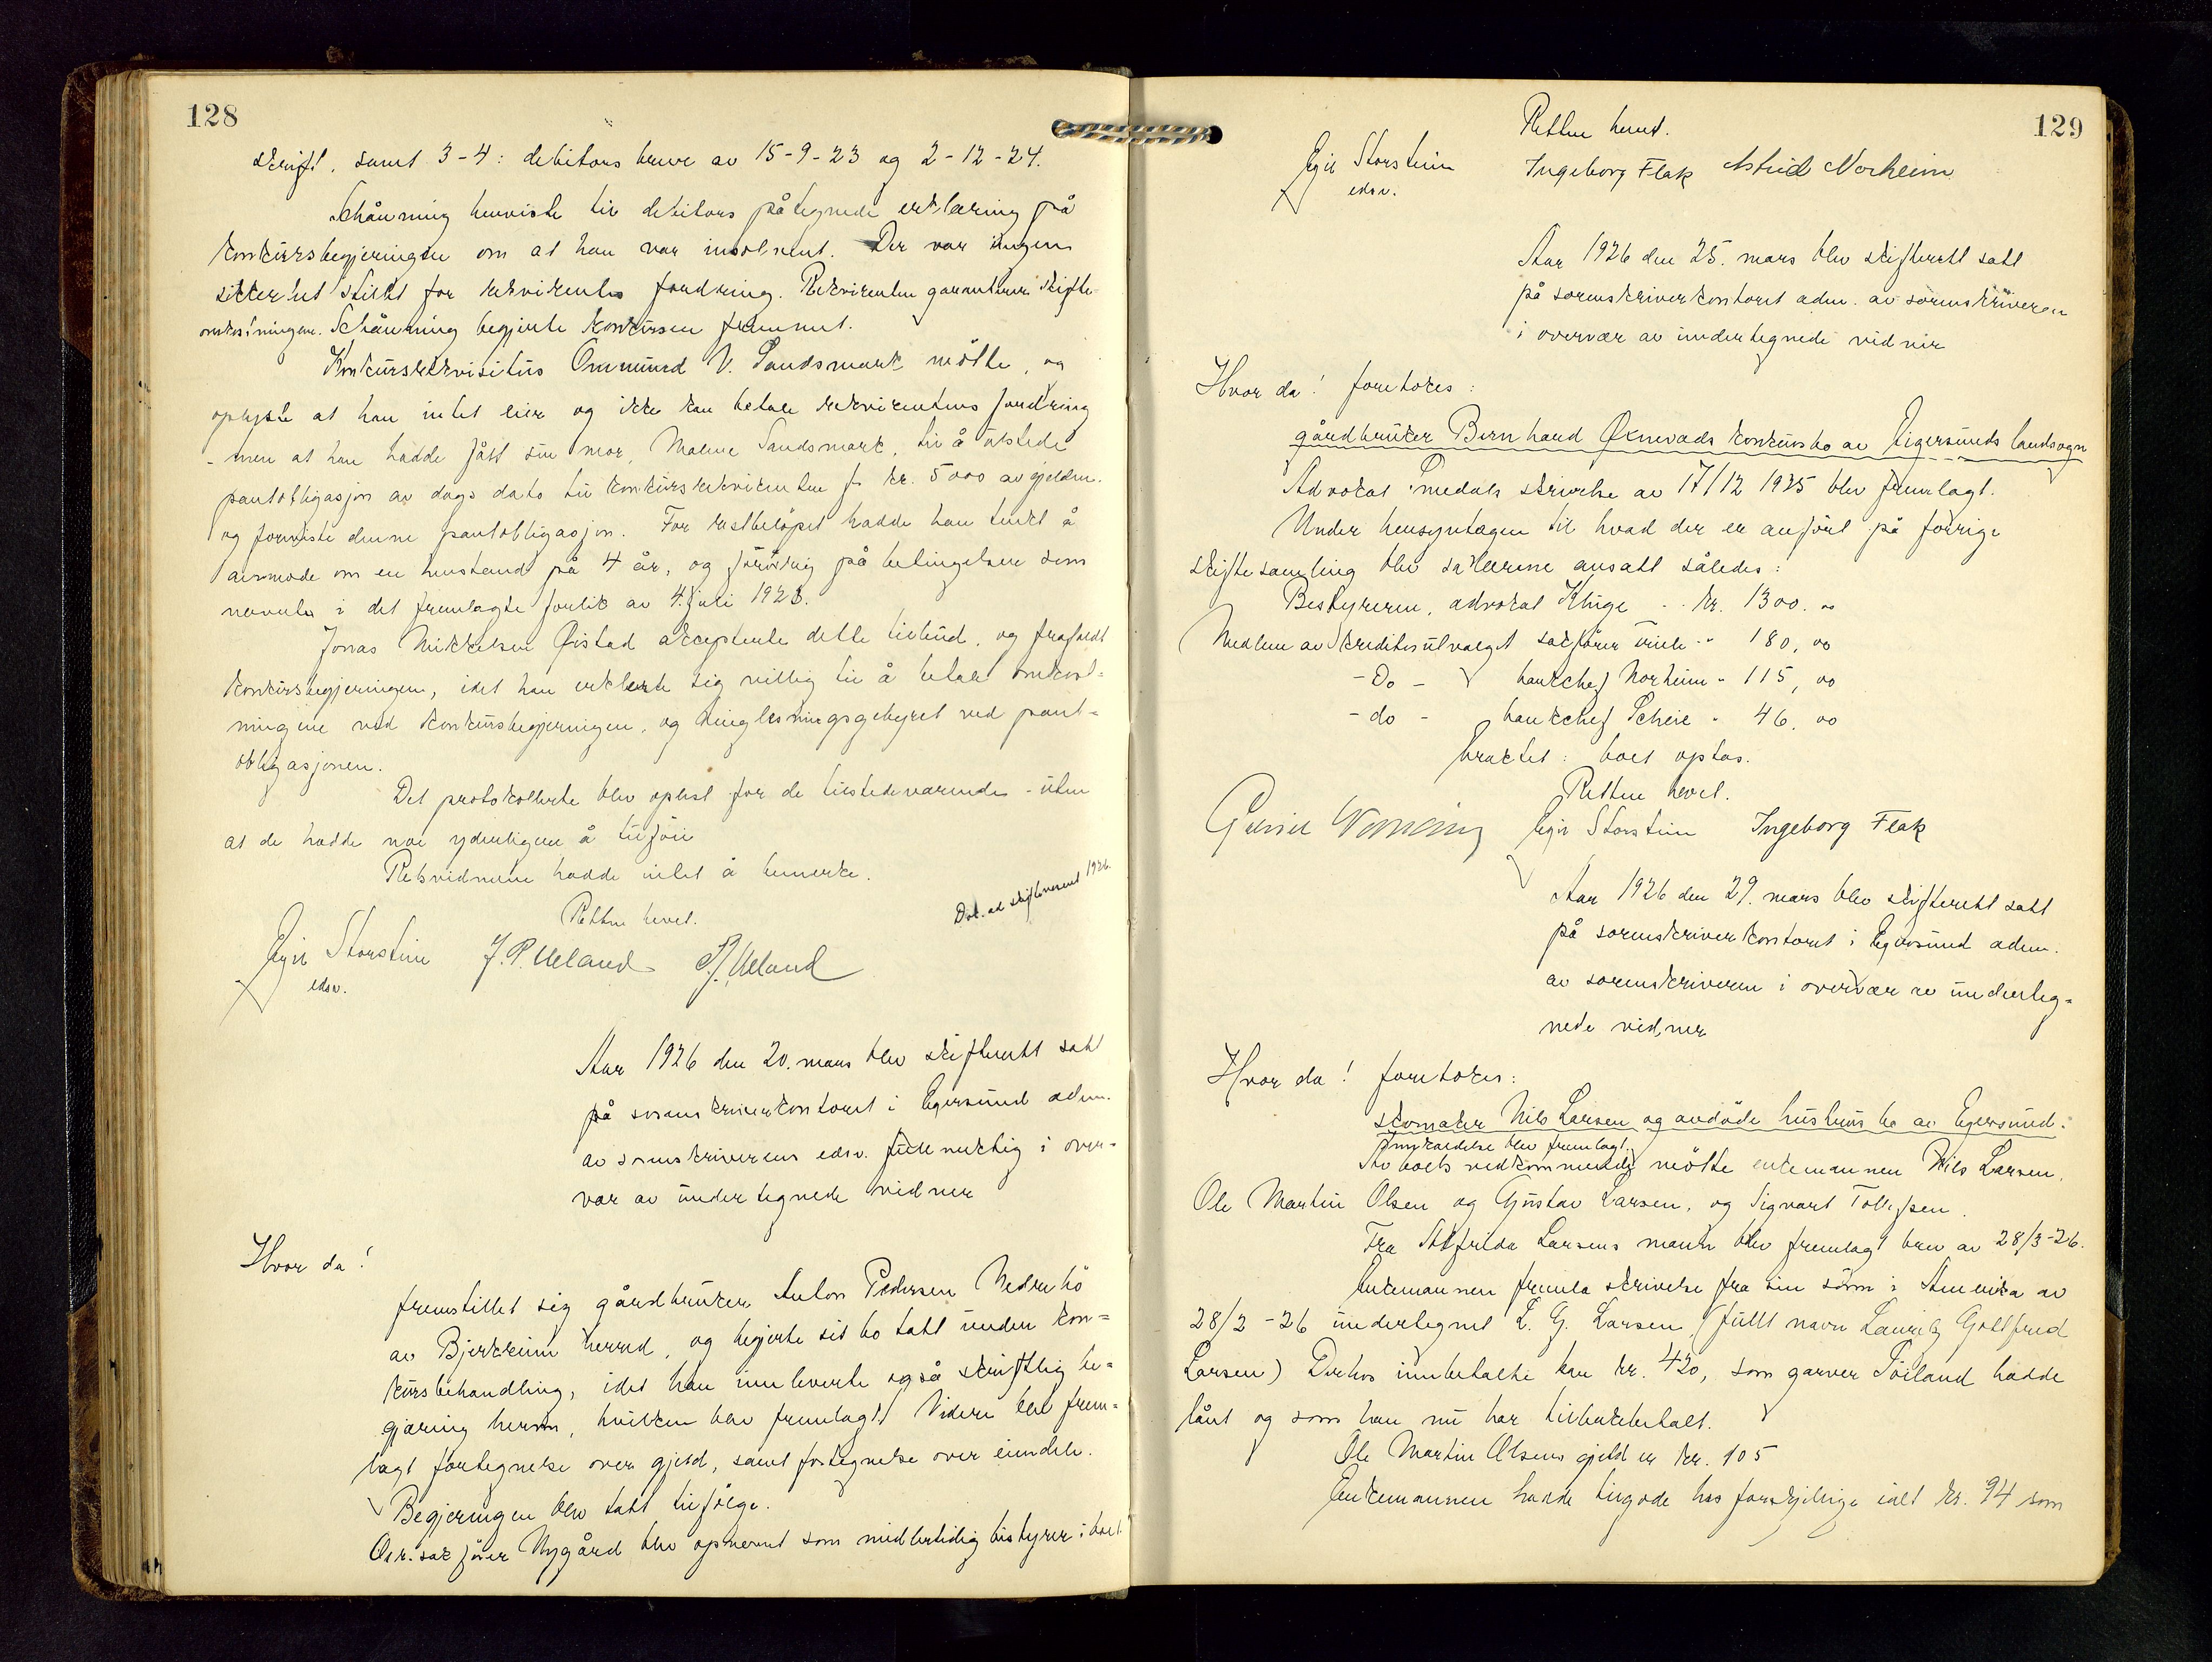 128
skrift, samt 3-4: debitors breve av 15-9-23 og 2-12-24.
Schånning henviste til debitors påtegnede erklæring på
konkursbegjeringen om at han var insolvent. Der var ingen
sikkerhet stillet for rekvirentens fordring. Rekvirenten garanterer skifte-
omkostningene. Schånning begjerte konkursen fremmet.
Konkursrekvisitus Ommund V. Sandsmark møtte, og
oplyste at han intet eier og ikke kan betale rekvirentens fordring
- men at han hadde fått sin mor, Malene Sandsmark, til å utstede
pantobligasjon av dags dato til konkursrekvirenten f. kr. 5000 av gjelden.
og foreviste denne pantobligasjon. For restbeløpet hadde han tenkt å
anmode om en henstand på 4 år, og forøvrig på betingelser som
nevnte i det fremlagte forlik av 4. juli 1923.
Jonas Mikkelsen Øistad accepterte dette tilbud, og frafaldt
konkursbegjeringen, idet han erklærte sig villig til å betale omkost-
ningene ved konkursbegjeringen, og tinglesningsgebyret ved pant-
obligasjonen.
Det protokollerte blev oplest for de tilstedeværende - uten
at de hadde noe yderligere å tilføie
Retsvidnene hadde intet å bemerke.
Retten hevet.
Dok. ad skiftevesenet 1926.
Egil Storstein J. P. Ueland P. J. Ueland
edsv.
Aar 1926 den 20. mars blev skifterett satt
på sorenskriverkontoret i Egersund adm.
av sorenskriverens edsv. fullmektig i over-
vær av undertegnede vidner
Hvor da!
fremstillet sig gårdbruker Anton Pedersen Nedrebø
av Bjerkreim herred, og begjerte sit bo tatt under kon-
kursbehandling, idet han innleverte også skriftlig be-
gjæring herom, hvilken blev fremlagt. Videre blev frem-
lagt fortegnelse over gjeld, samt fortegnelse over eiendele.
Begjeringen blev tatt tilfølge.
O.r.sakfører Nygård blev opnevnt som midlertidig bestyrer i boet
129
Retten hevet.
Egil Storstein Ingeborg Flak Astrid Norheim
edsv.
Aar 1926 den 25. mars blev skifterett satt
på sorenskriverkontoret adm. av sorenskriveren
i overvær av undertegnede vidner
Hvor da! foretokes:
gårdbruker Bernhard Øknevads konkursbo av Eigersunds landsogn
Advokat Smedals skrivelse av 17/12 1925 blev fremlagt.
Under hensyntagen til hvad der er anført på forrige
skiftesamling blev salærene ansatt således:
Bestyreren, advokat Kluge .. kr. 1300. oo
Medlem av kreditorutvalget sakfører .. 180, oo
- Do - bankchef Norheim " 115, oo
- do - bankchef Scheie " 46, oo
hvoretter boet optas.
Retten hevet.
Egil Storstein Ingeborg Flak
Aar 1926 den 29. mars blev skifterett satt
på sorenskriverkontoret i Egersund adm.
av sorenskriveren i overvær av underteg-
nede vidner
Hvor da! foretokes:
skomaker Nils Larsen og avdøde hustrus bo av Egersund.
Innkaldelse blev fremlagt.
Av boets vedkommende møtte enkemannen Nils Larsen,
Ole Martin Olsen og Gustav Larsen, og Sigvart Tollefsen.
Fra Alfrida Larsens mann blev fremlagt brev av 28/3-26.
Enkemannen fremla skrivelse fra sin sønn i Amerika av
28/2-26 undertegnet L. G. Larsen, (fullt navn Lauritz Gottfred
Larsen) Derhos innbetalte han kr. 420, som garver Tøiland hadde
lånt og som han nu har tilbakebetalt.
Ole Martin Olsens gjeld er kr. 105
Enkemannen hadde tilgode hos forskjellige ialt kr. 94 som